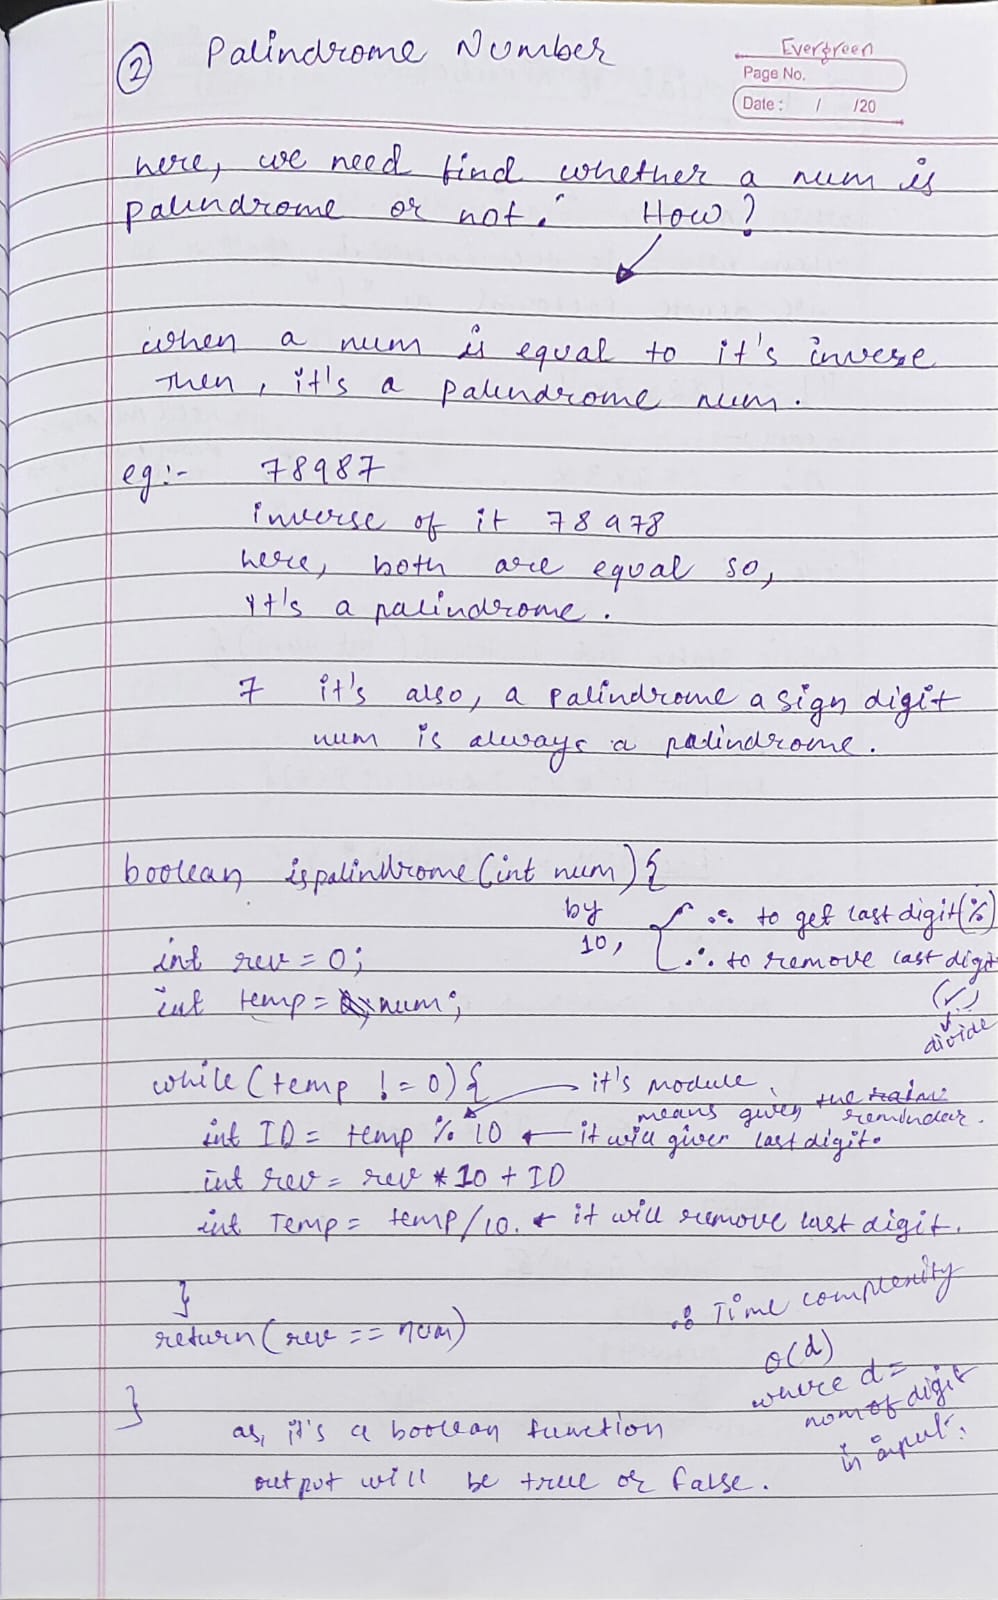 ② Palindrome Number
Evergreen
Page No.
Date : / /20
here, we need find whether a num is
palindrome or not. How?
when a num is equal to it's invese
Then, it's a palindrome num.
eg:- 78987
inverse of it 78978
here, both are equal so,
it's a palindrome.
7 it's also, a palindrome a sign digit
num is always a palindrome.
boolean ispalindrome(int num){
by 10, ∴ to get last digit(%)
∴ to remove last digit
(/)
divide
int rev = 0;
int temp = num;
while(temp != 0){ it's module,
means given the reminder.
int ID = temp % 10 ← it will given last digit.
int rev = rev * 10 + ID
int Temp = temp/10. ← it will remove last digit.
}
return(rev == num)
}
∴ Time complexity
O(d)
where d =
nom of digit
in input.
as, it's a boolean function
output will be true or false.